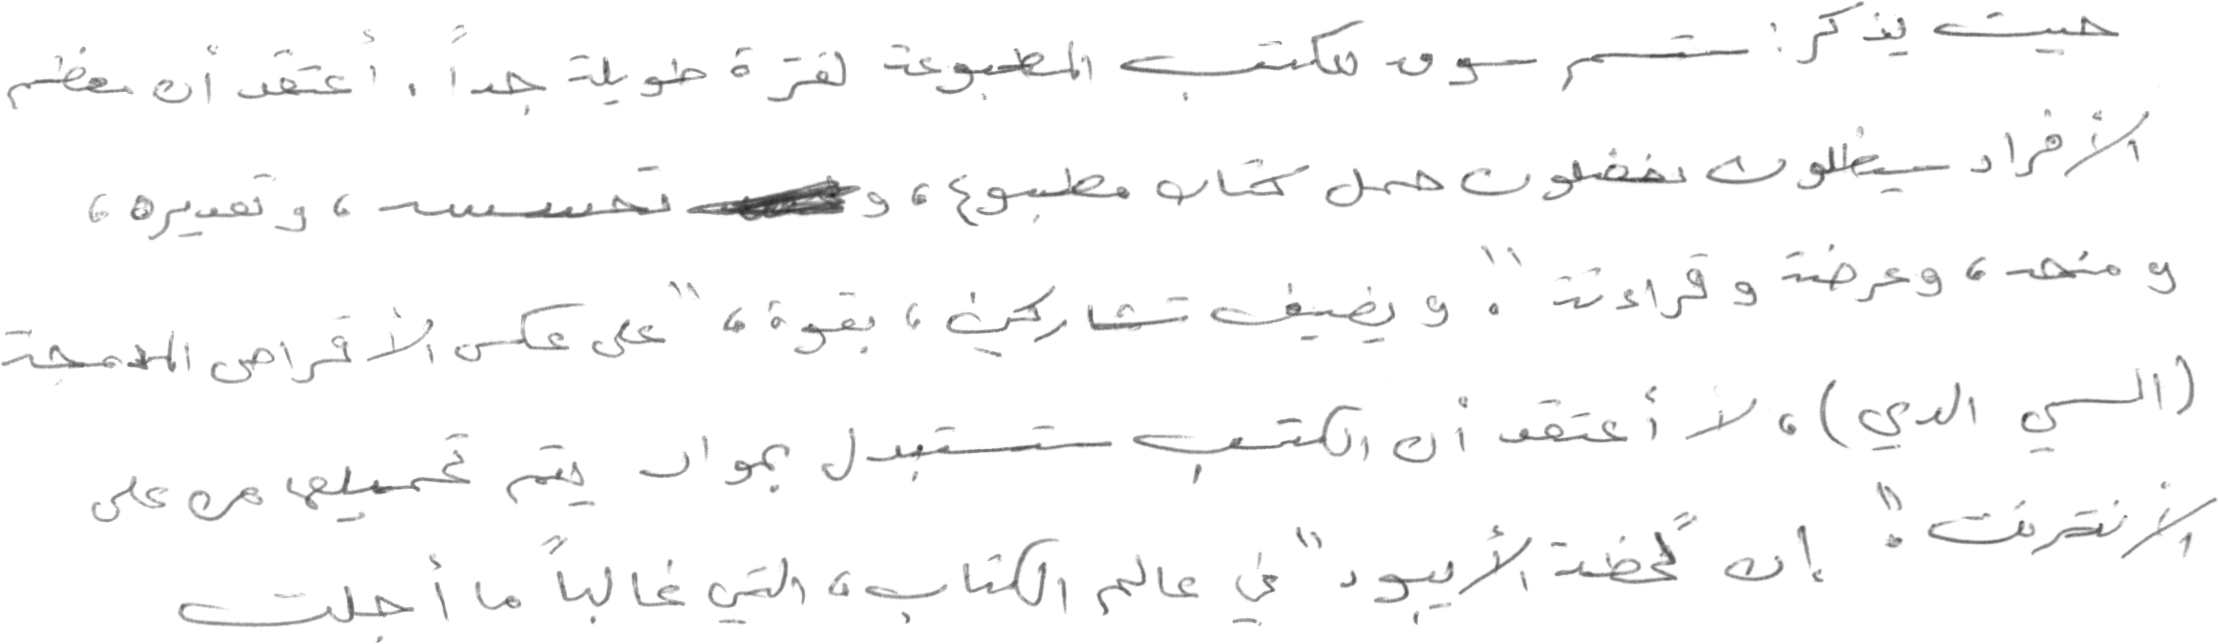 حيث يذكر: ستسم سوق للكتب المطبوعة لفترة طويلة جداً. أعتقد أن معظم
الأفراد سيظلون يفضلون حمل كتاب مطبوع، و تحسسه، وتقديره،
ومنحه، وعرضة وقراءتة". ويضيف تشاركين، بقوة، "على عكس الأقراص المدمجة
(السي الدي)، لا أعتقد أن الكتب ستستبدل بمواد يتم تحميلها من على
الأنترنت". إن "لحظة الأيبود" في عالم الكتاب، التي غالباً ما أجلت